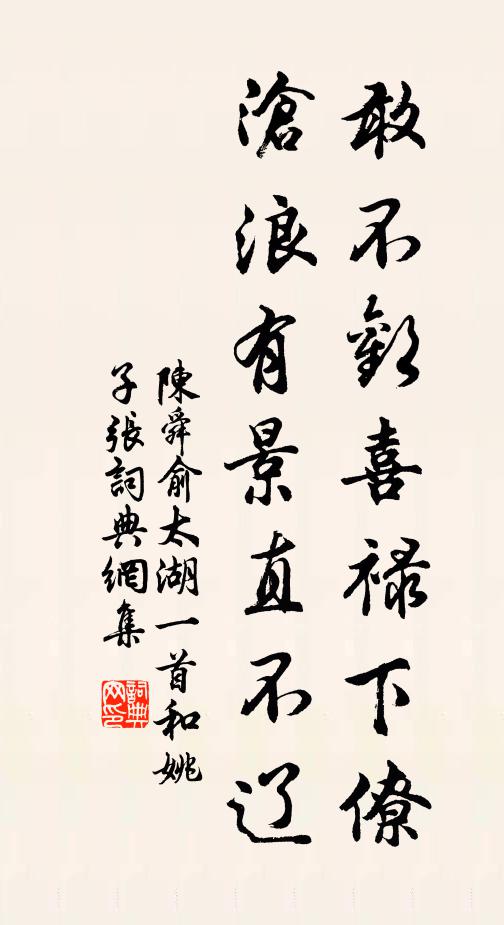 敢不歡喜禄下僚
滄浪有景直不辽
陳舜俞太湖一首和姚
子張詞典網集
詞典
网印